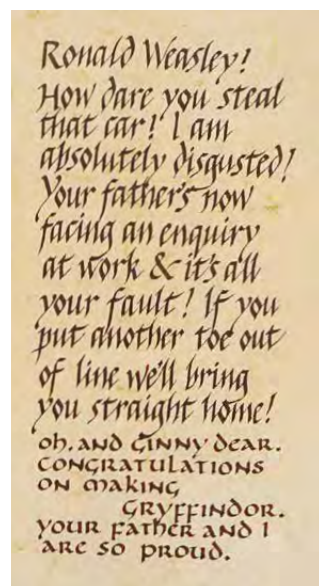 Ronald Weasley!
How dare you steal
that car! I am
absolutely disgusted!
Your father's now
facing an enquiry
at work & it's all
your fault! If you
put another toe out
of line we'll bring
you straight home!
oh, and Ginny dear.
congratulations
on making
Gryffindor.
your father and I
are so proud.